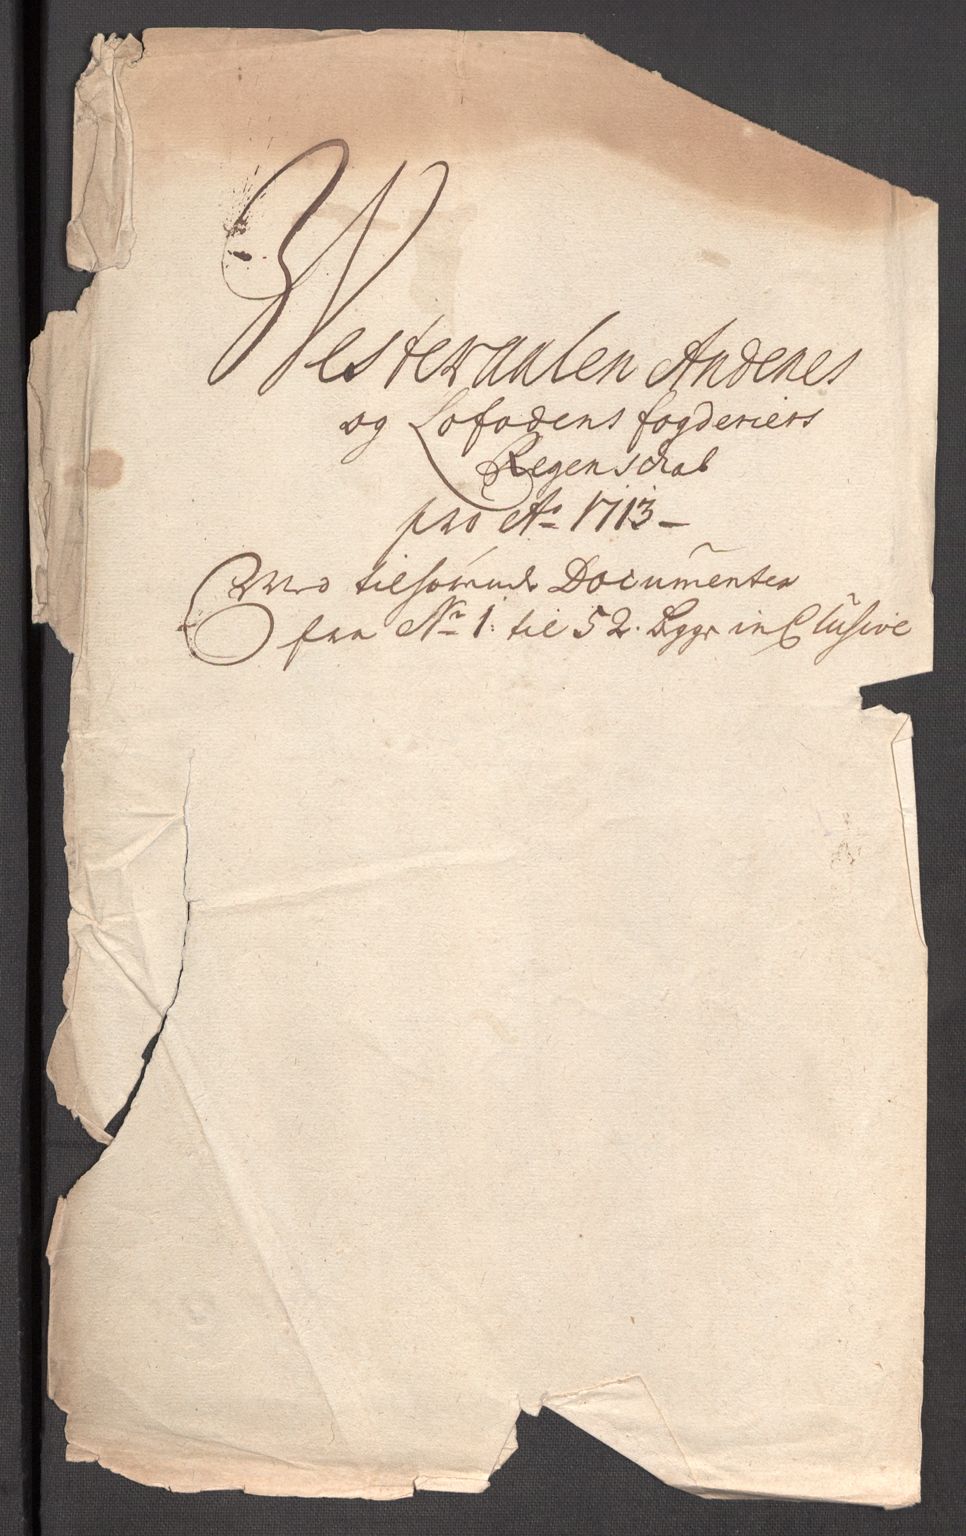 Westeraalen Andenes
og Lofodens fogderiers
Regenschab
pro Ao 1713
Med tilhørende Documenter
fra No 1. til 52. Begge inClusive